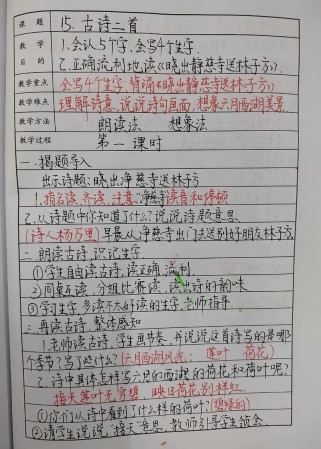 课题 15.古诗二首
教学目的 1.会认5个字,会写4个生字.
2.正确流利地读《晓出静慈寺送林子方》.
教学重点 会写4个生字,背诵《晓出静慈寺送林子方》
教学难点 理解诗意,说说诗句画面,想象六月西湖美景
教学方法 朗读法 想象法
教学过程 第一课时
一.揭题导入
出示诗题:晓出净慈寺送林子方
1.指名读,齐读,注意:净慈寺读音和停顿
2.从诗题中你知道了什么?说说诗题意思.
(诗人杨万里)早晨从净慈寺出门去送别好朋友林子方.
二.朗读古诗,识记生字.
①学生自由读古诗,读正确,流利.
②同桌互读,分组比赛读,读出诗的韵味
③学习生字,多读不太好读的生字,老师指导
三.再读古诗,整体感知
1.老师读古诗,学生画节奏,并说说这首诗写的是哪
个季节?写了些什么?(六月西湖风光: 莲叶 荷花)
2.诗中具体怎样写六月的西湖的荷花和荷叶呢?
接天莲叶无穷碧,映日荷花别样红.
①你们从诗中看到了什么样的荷叶:(碧绿的)
②请学生说说"接天"意思,教师引导学生领会.